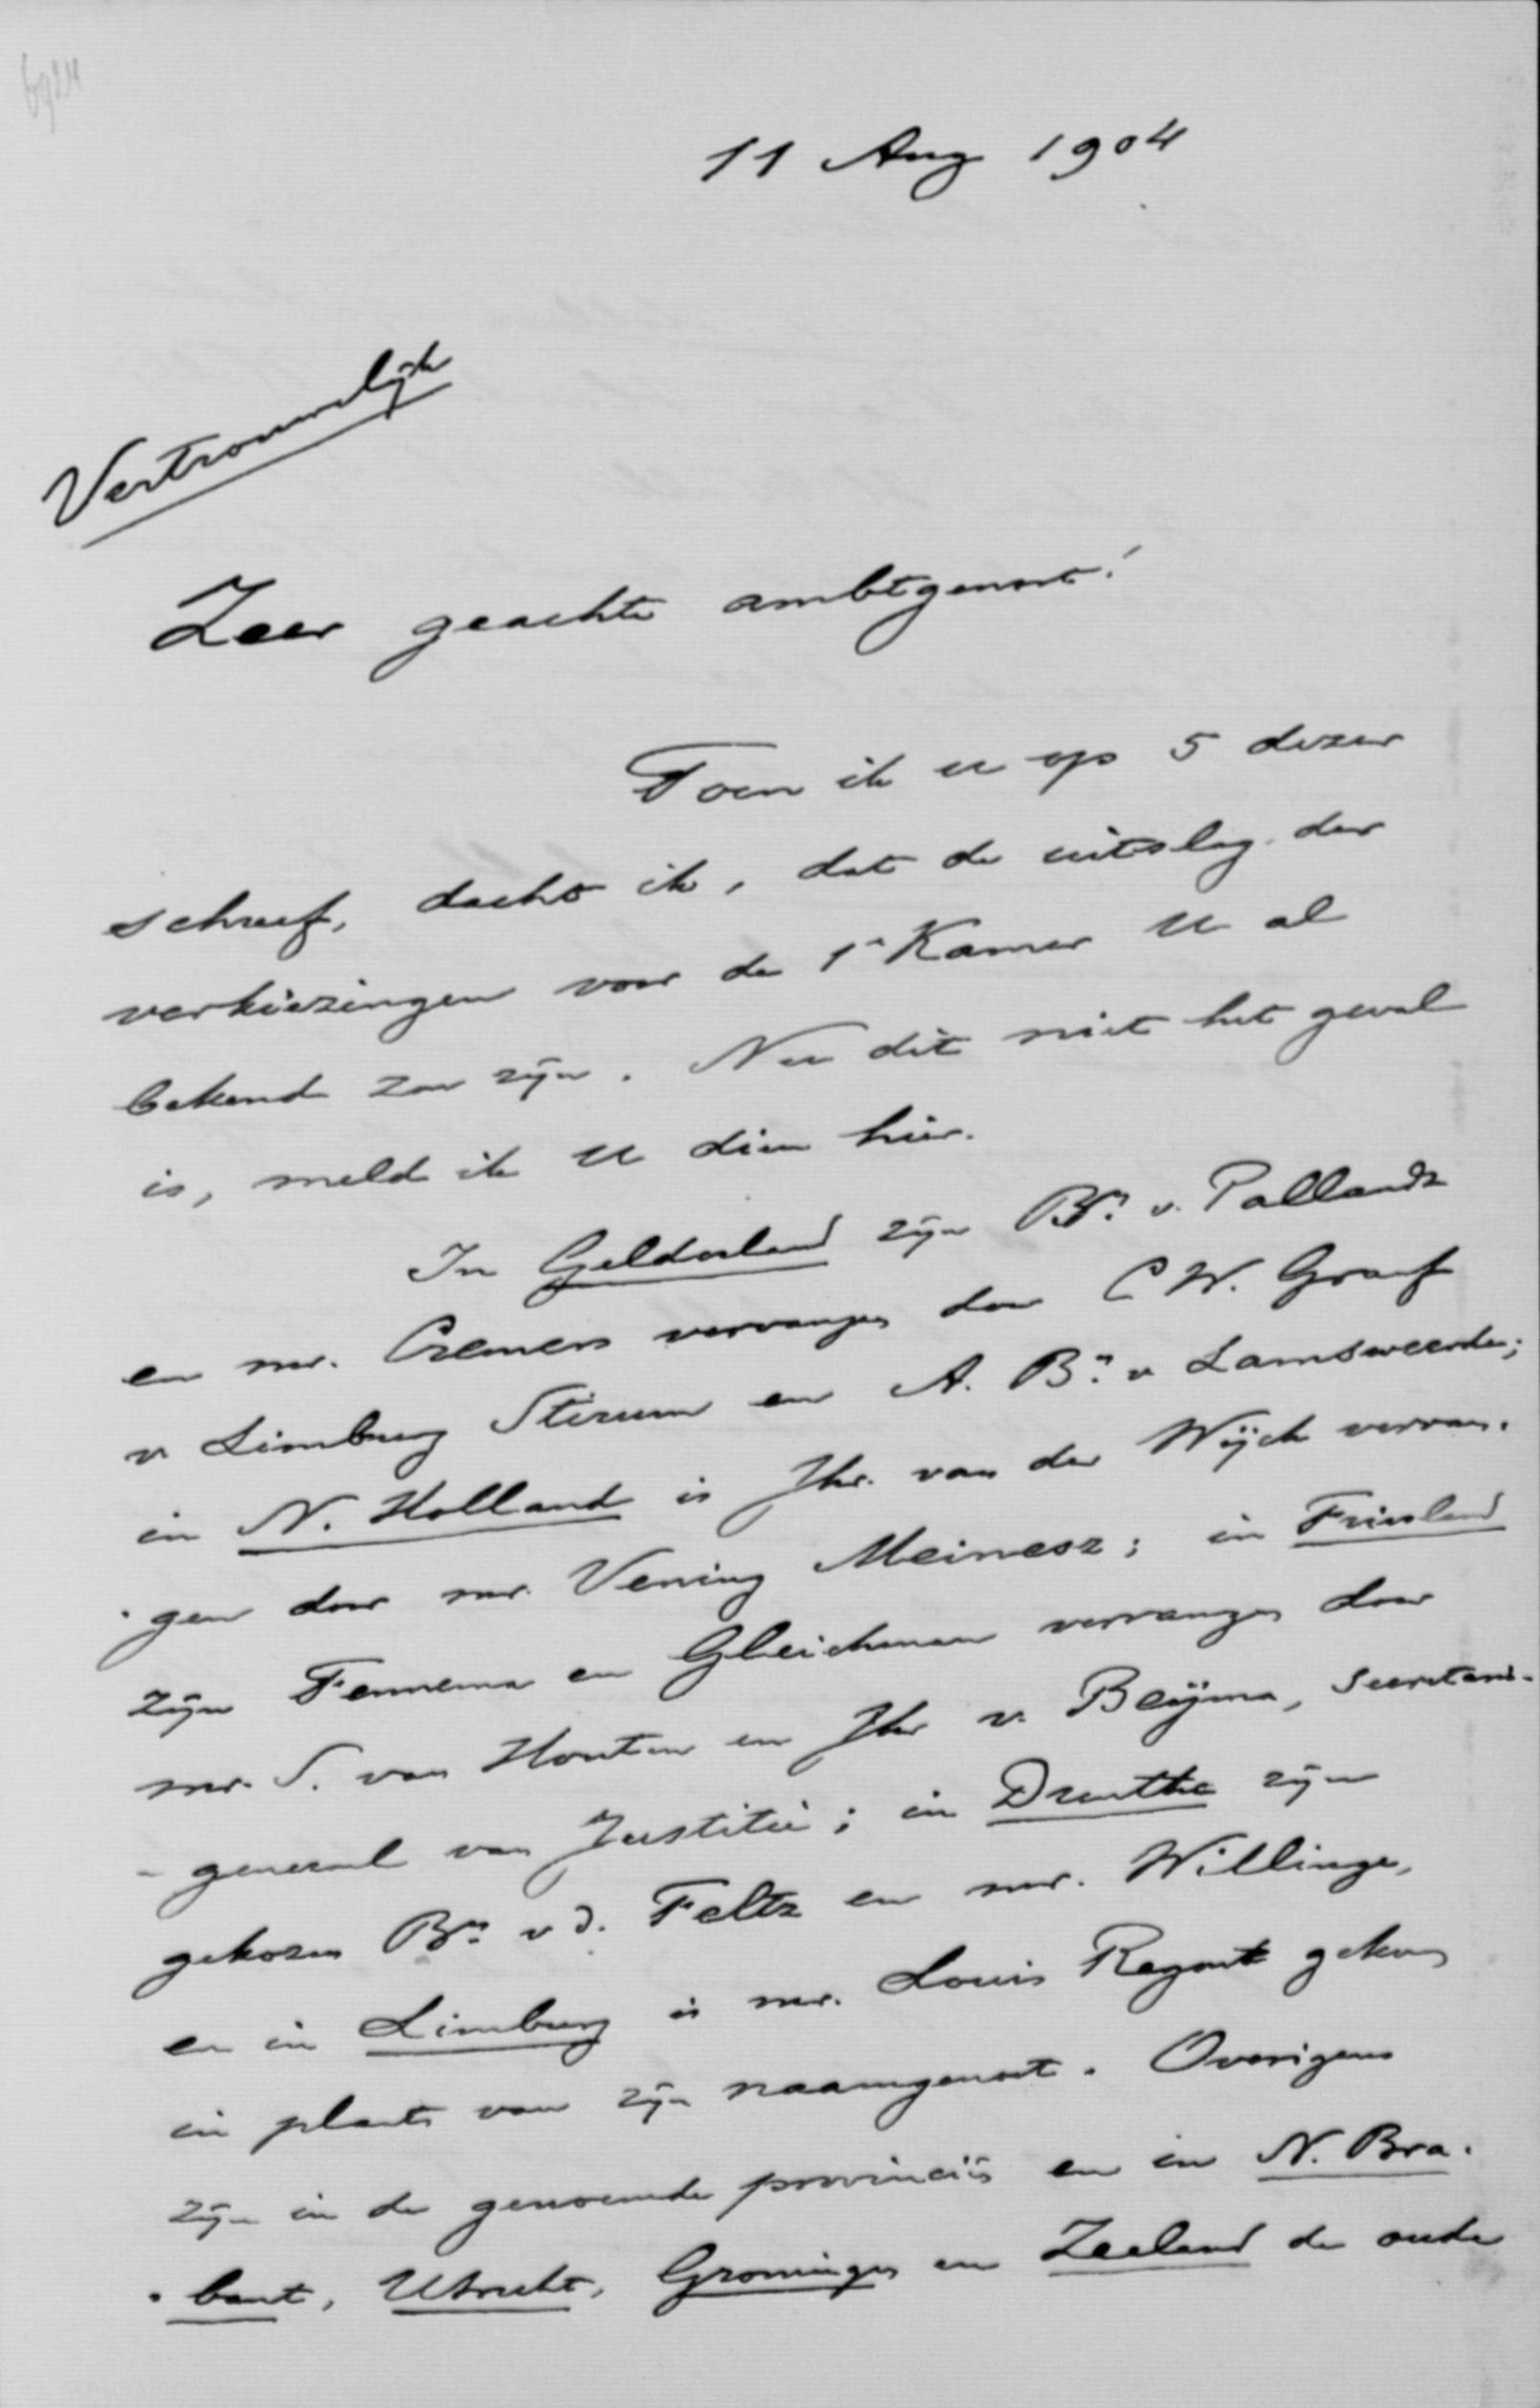 6924
11 Aug 1904
Vertrouwelijk
Zeer geachte ambtgenoot!
Toen ik u op 5 dezer
schreef, dacht ik, dat de uitslag der
verkiezingen voor de 1e Kamer U al
bekend zou zijn. Nu dit niet het geval
is, meld ik U dien hier.
In Gelderland zijn Bn. v. Pallandt
en mr. Cremers vervangen door C W. Graaf
v Limburg Stirum en A. Bn. v Lamsweerde;
in N. Holland is Jhr. van der Wijck vervan-
gen door mr. Vening Meinesz; in Friesland
zijn Fennema en Gleichman vervangen door
mr. S. van Houten en Jhr v. Beijma, secretaris-
-generaal van Justitie; in Drenthe zijn
gekozen Bn. v d. Feltz en mr. Willinge,
en in Limburg is mr. Louis Regout gekozen
in plaats van zijn naamgenoot. Overigens
zijn in de genoemde provinciën en in N. Bra-
bant, Utrecht, Groningen en Zeeland de oude